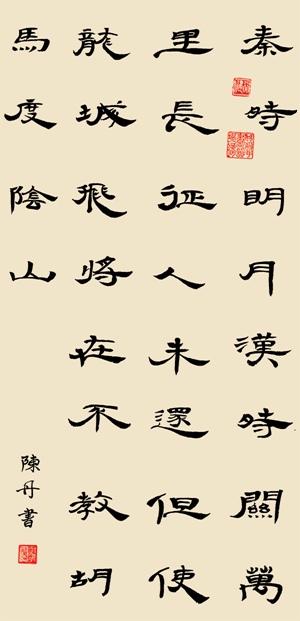 秦時明月漢時關萬
里長征人未還但使
龍城飛將在不教胡
馬度陰山
陳丹書